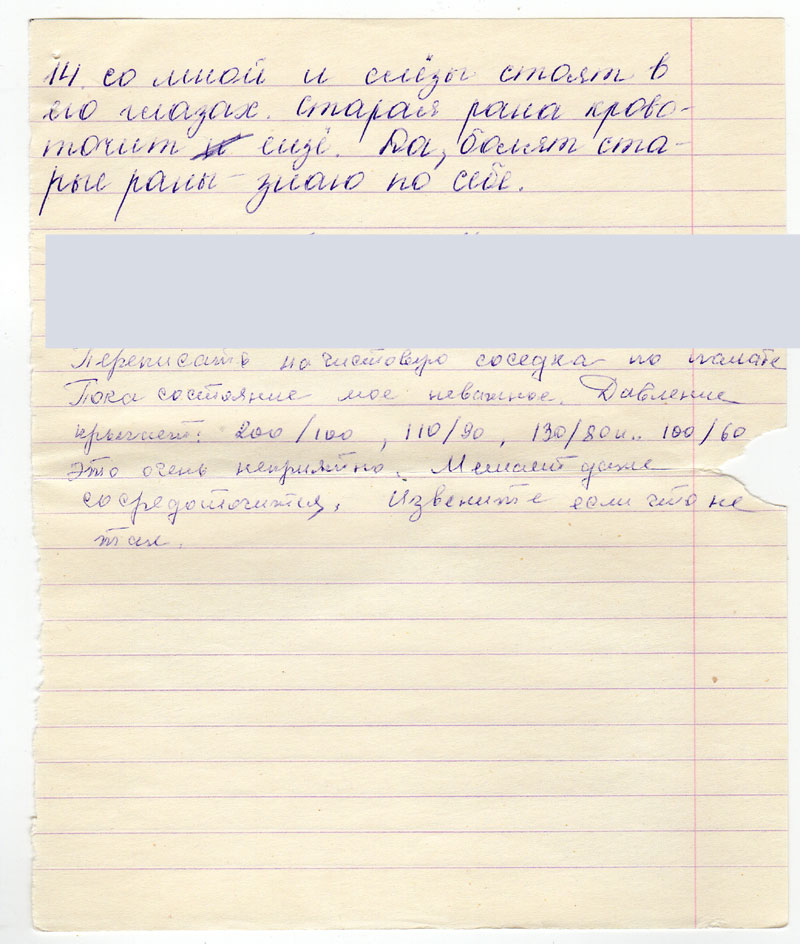 14. со мной и слёзы стоят в
его глазах. Старая рана крово-
точит ещё. Да, болят ста-
рые раны - знаю по себе.
Переписать начистовую соседка по палате
Пока состояние мое неважное. Давление
прыгает: 200/100, 110/90, 130/80 и.. 100/60
Это очень неприятно. Мешает даже
сосредоточится. Извените если что не
так.